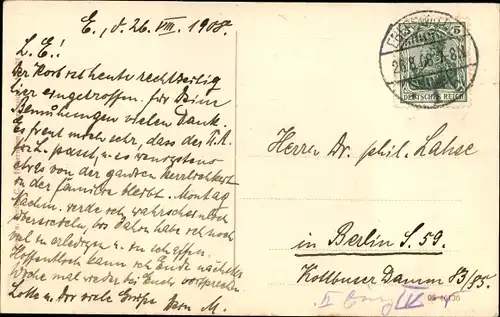 E., d. 26. VIII. 1908.
L. E.!
Der Korb ist heute rechtzeitig
hier eingetroffen. Für Deine
Bemühungen vielen Dank.
Es freut mich sehr, dass der
für L. passt, u. es wenigstens
etwas von der ganzen Herrlichkeit
in der Familie bleibt. Montag
Nachm. werde ich wahrscheinlich
übersiedeln, bis dahin habe ich noch
viel zu erledigen u. zu schaffen.
Hoffentlich kann ich Ende nächster
Woche mal wieder bei Euch vorsprechen.
Lotte u. Dir viele Grüße Dein M.
26.8.08
5
DEUTSCHES REICH
Herrn Dr. phil. Lahse
in Berlin S. 59.
Kottbuser Damm 83/85.
II
IV